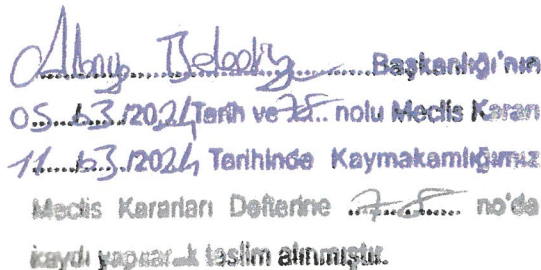 Alanya Belediye Başkanlığı'nın
05.03/2024 Tarih ve 78 nolu Meclis Kararı
11.03/2024 Tarihinde Kaymakamlığımız
Meclis Kararları Defterine 78 no'da
kaydı yapılarak teslim alınmıştır.